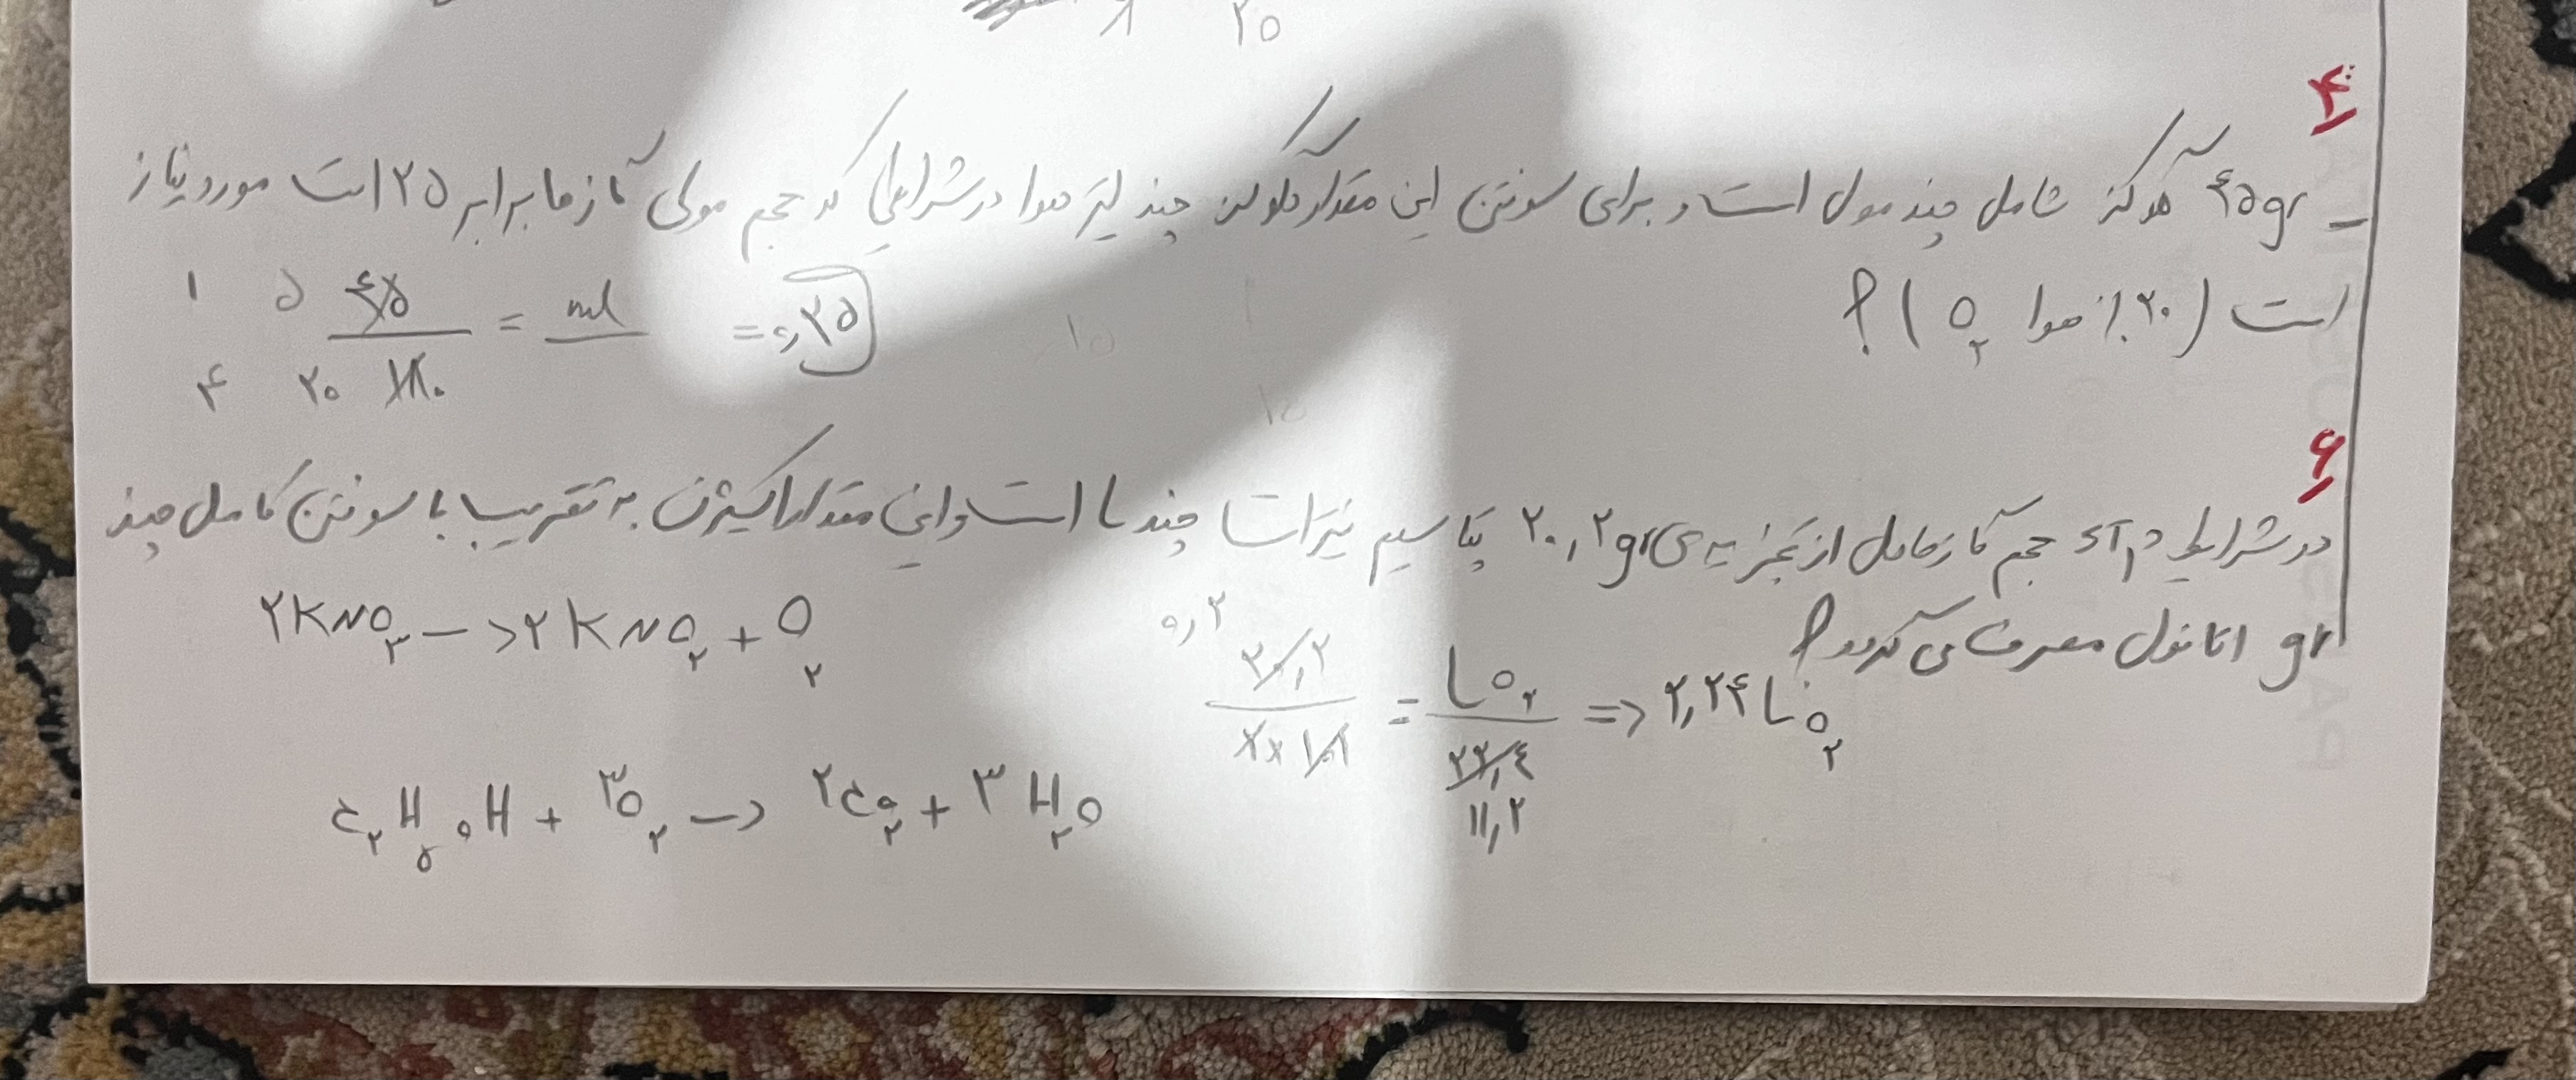 ۲۰
۴
_ ۴۵gr گلوکز شامل چند مول است و برای سوختن این مقدار گلوکز چند لیتر هوا در شرایطی که حجم مولی گازها برابر ۲۵ است مورد نیاز
است (۲۰٪ از هوا O۲) ؟
۱ ۵ ۴۵ = mol = ۰,۲۵
۴ ۲۰ ۱۸۰
۶
در شرایط STP حجم گاز حاصل از تجزیه ی ۲۰,۲gr پتاسیم نیترات چند L است و این مقدار اکسیژن به تقریب با سوختن کامل چند
gr اتانول مصرف می گردد ؟
۲KNO۳ —> ۲KNO۲ + O۲
۰,۲
۲۰,۲ = LO۲ => ۲,۲۴ L O۲
۲ × ۱۰۱ ۲۲,۴
۱۱,۲
C۲H۵OH + ۳O۲ —> ۲CO۲ + ۳H۲O